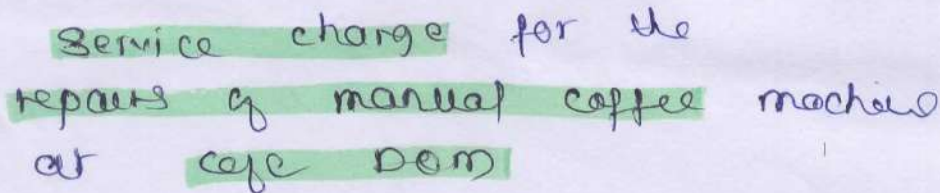 Service charge for the
repairs of manual coffee machine
at cafe DOM